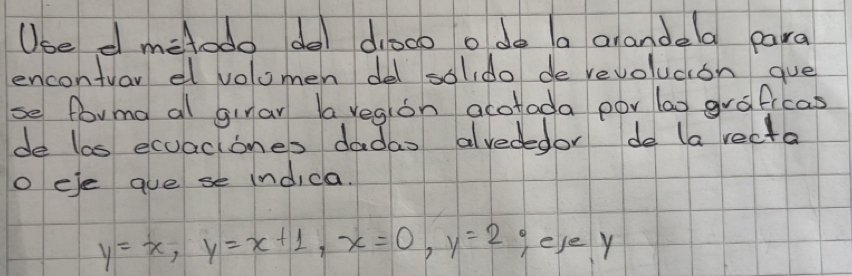 Use el método del disco o de la arandela para
encontrar el volumen del sólido de revolución que
se forma al girar la región acotada por las gráficas
de las ecuaciónes dadas alrededor de la recta
o eje que se indica.
y=x, y=x+1, x=0, y=2; eje y